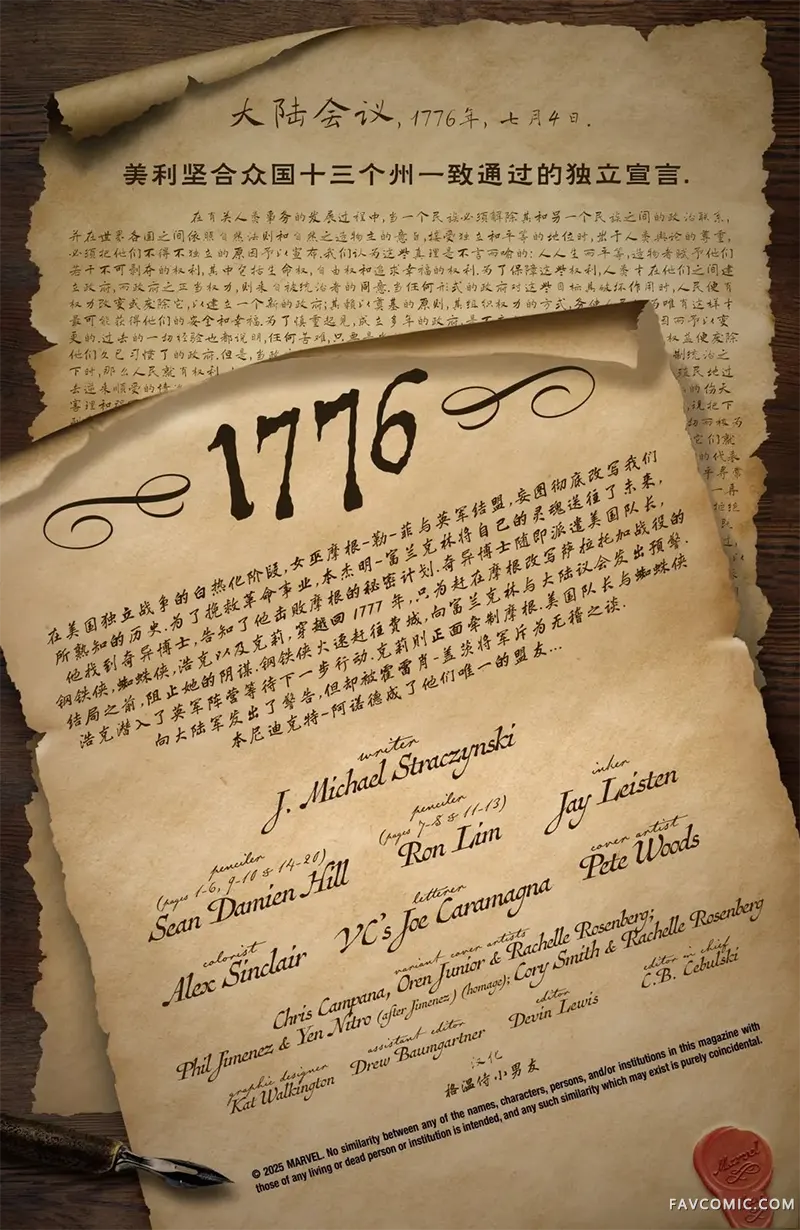 大陆会议, 1776年, 七月4日.
美利坚合众国十三个州一致通过的独立宣言.
在有关人类事务的发展过程中,当一个民族必须解除其和另一个民族之间的政治联系,
并在世界各国之间依照自然法则和自然之造物主的意旨,接受独立和平等的地位时,出于人类舆论的尊重,
必须把他们不得不独立的原因予以宣布.我们认为这些真理是不言而喻的: 人人生而平等,造物者赋予他们
若干不可剥夺的权利,其中包括生命权,自由权和追求幸福的权利.为了保障这些权利,人类才在他们之间建
立政府,而政府之正当权力,则来自被统治者的同意.当任何形式的政府对这些目标具破坏作用时,人民便有
权力改变或废除它,以建立一个新的政府;其赖以奠基的原则,其组织权力的方式,务使人民
历难有这样才
最可能获得他们的安全和幸福.为了慎重起见,成立多年的政府,是不
因而予以变
更的.过去的一切经验也都说明,任何苦难,只要是
权益便废除
他们久已习惯了的政府.但是,当
制统治之
下时,那么人民就有权利
殖民地过
去逆来顺受的情
的伤天
害理和
说把下
它们就
的代表
1776
在美国独立战争的白热化阶段,女巫摩根-勒-菲与英军结盟,妄图彻底改写我们
所熟知的历史.为了挽救革命事业,本杰明-富兰克林将自己的灵魂送往了未来,
他找到奇异博士,告知了他击败摩根的秘密计划.奇异博士随即派遣美国队长,
钢铁侠,蜘蛛侠,浩克以及克莉,穿越回 1777 年,只为赶在摩根改写萨拉托加战役的
结局之前,阻止她的阴谋.钢铁侠火速赶往费城,向富兰克林与大陆议会发出预警.
浩克潜入了英军阵营等待下一步行动.克莉则正面牵制摩根.美国队长与蜘蛛侠
向大陆军发出了警告,但却被霍雷肖-盖茨将军斥为无稽之谈.
本尼迪克特-阿诺德成了他们唯一的盟友...
writer
J. Michael Straczynski
penciler
(pages 1-6, 9-10 & 14-20)
Sean Damien Hill
penciler
(pages 7-8 & 11-13)
Ron Lim
inker
Jay Leisten
colorist
Alex Sinclair
letterer
VC's Joe Caramagna
cover artist
Pete Woods
variant cover artists
Chris Campana, Oren Junior & Rachelle Rosenberg;
Phil Jimenez & Yen Nitro (after Jimenez) (homage); Cory Smith & Rachelle Rosenberg
graphic designer
Kat Walkington
assistant editor
Drew Baumgartner
editor
Devin Lewis
editor in chief
C.B. Cebulski
汉化
格温侍小男友
© 2025 MARVEL. No similarity between any of the names, characters, persons, and/or institutions in this magazine with
those of any living or dead person or institution is intended, and any such similarity which may exist is purely coincidental.
Marvel
FAVCOMIC.COM